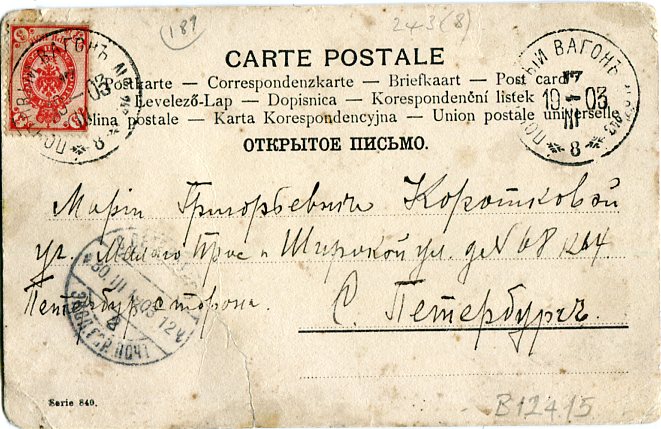 (189
243(8)
CARTE POSTALE
Postkarte — Correspondenzkarte — Briefkaart — Post card
Levelező-Lap — Dopisnica — Korespondenční listek
Karta Korespondencyjna — Union postale universelle
ОТКРЫТОЕ ПИСЬМО.
ПОЧТОВЫЙ ВАГОНЪ
03
8
ВАГОНЪ
19 03
III
8
Маріи Григорьевнѣ Коротковой
уг. Малаго Прос и Широкой ул. д № 68 кв 4
Петербургс сторона.
С. Петербургъ.
30.III.1903
8
ПОЧТ
Serie 840.
B12415